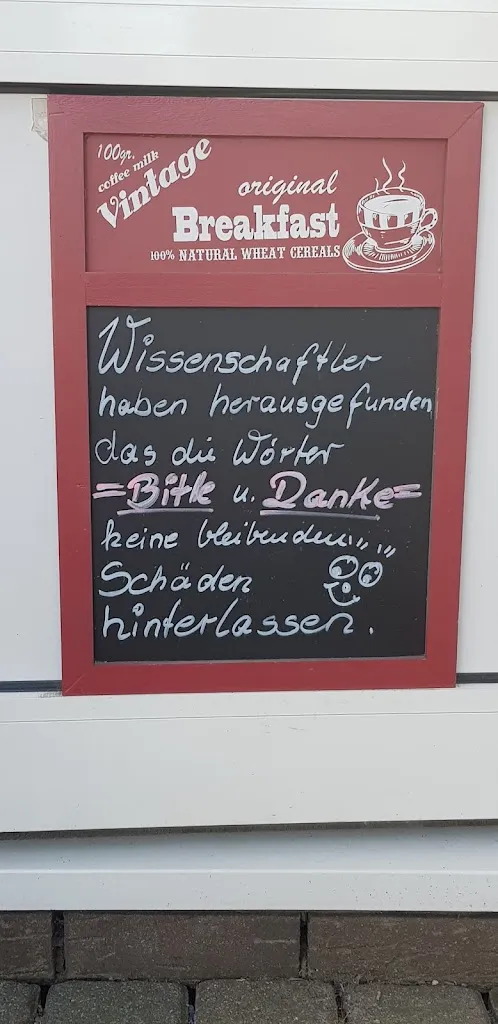 100gr.
coffee milk
Vintage
original
Breakfast
100% NATURAL WHEAT CEREALS
Wissenschaftler
haben herausgefunden
das die Wörter
=Bitte u. Danke=
keine bleibenden
Schäden
hinterlassen.